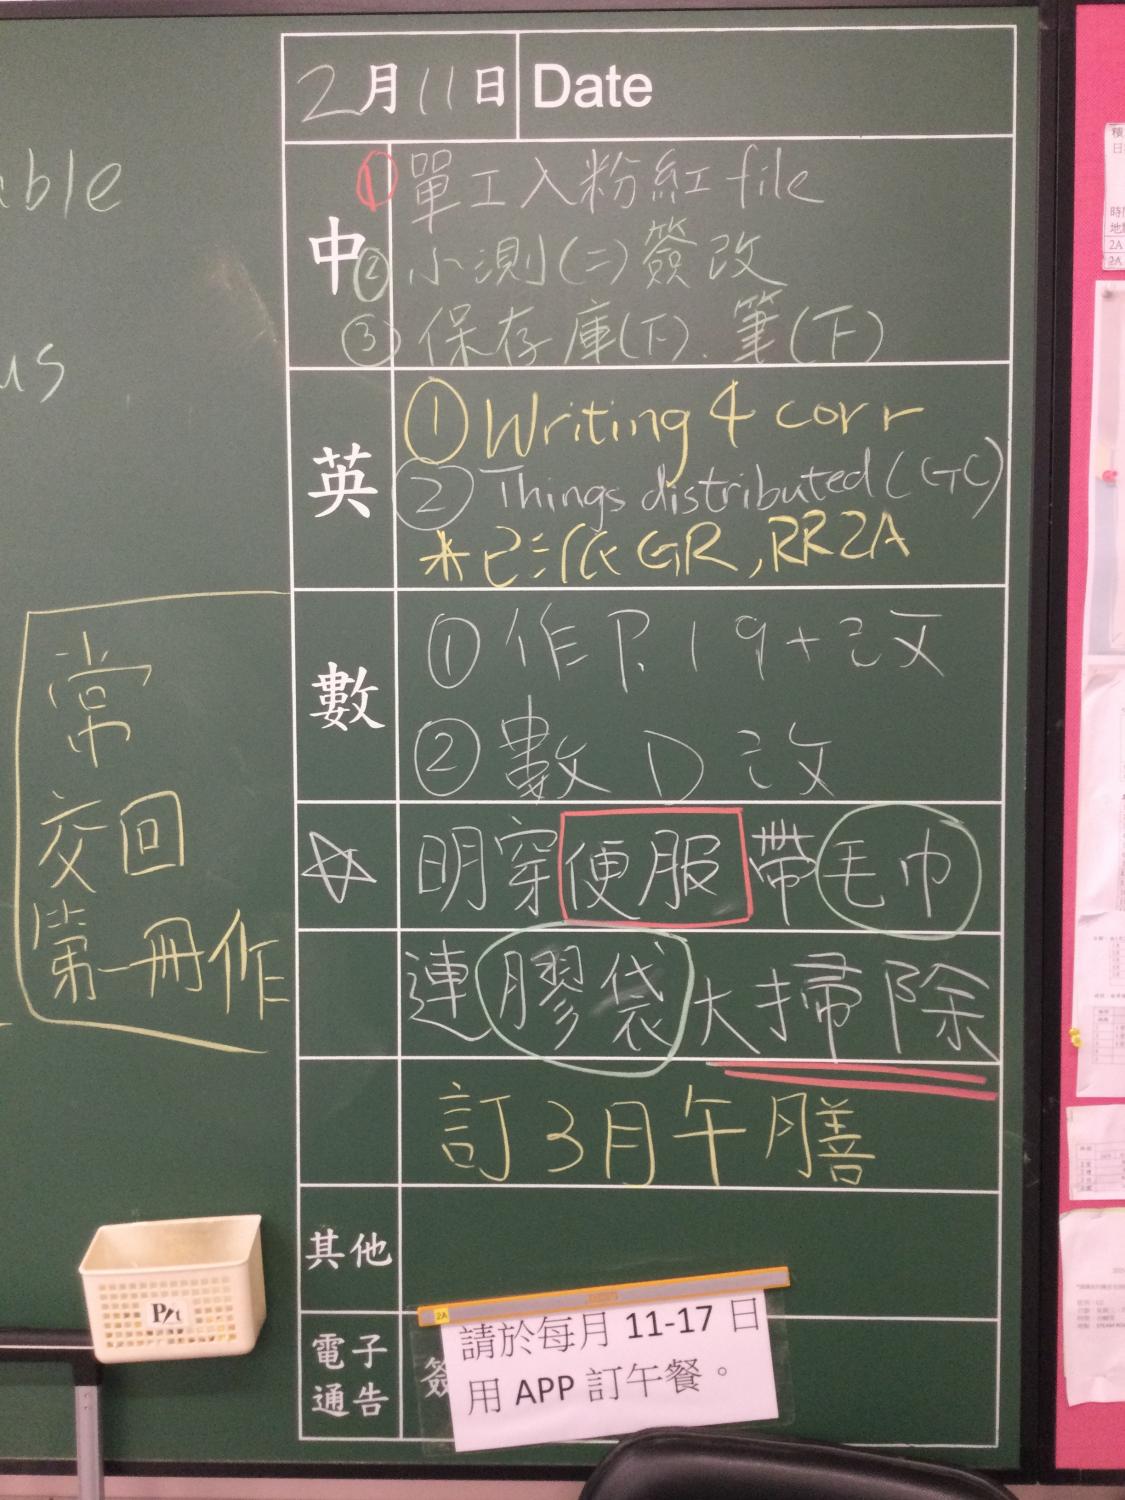 2月11日 Date
中 ① 單工入粉紅 file
② 小測(二)簽改
③ 保存庫(下).筆(下)
英 ① Writing 4 corr
② Things distributed (GC)
*已派 GR, RR2A
數 ① 作 P.19+改
② 數 D 改
☆ 明穿便服帶毛巾
連膠袋大掃除
訂3月午膳
其他
電子
通告
簽
2A
請於每月 11-17 日
用 APP 訂午餐。
常
交回
第一冊作
us